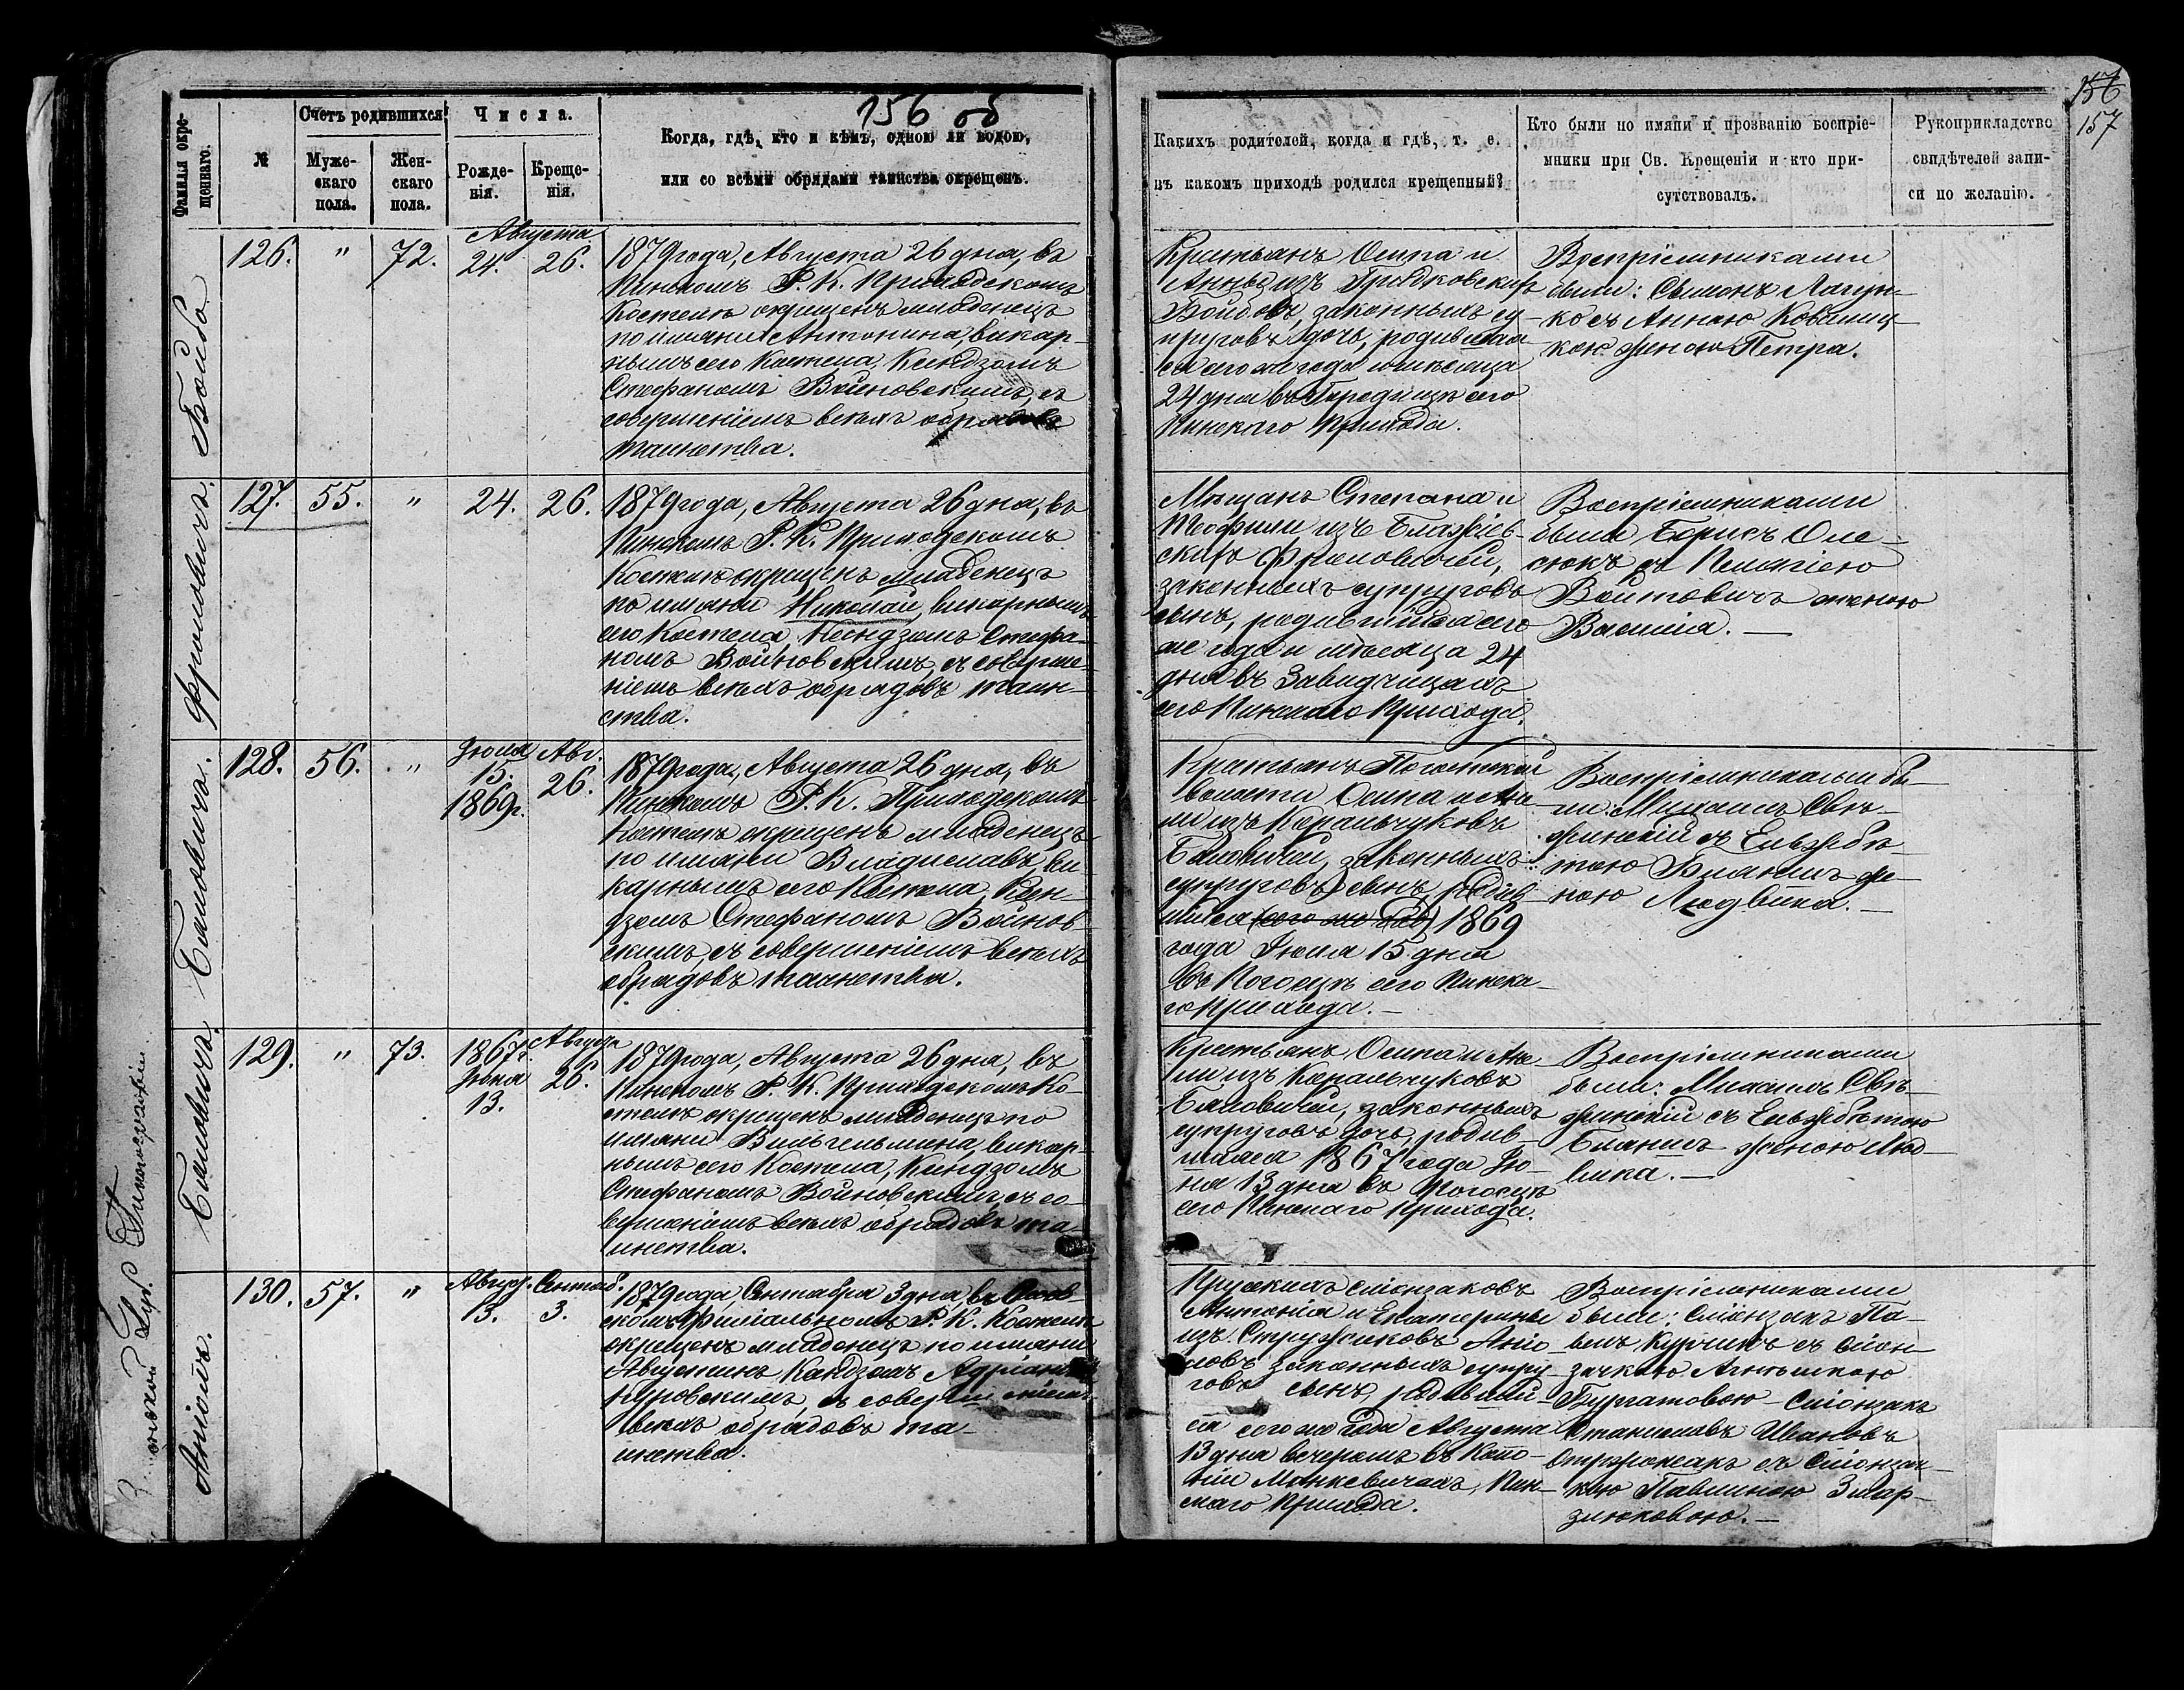 156 об
156
157
Фамилія окре-
щеннаго.
№
Счетъ родившихся.
Муже-
скаго
пола.
Жен-
скаго
пола.
Числа.
Рожде-
нія.
Креще-
нія.
Когда, гдѣ, кто и кѣмъ, одною ли водою,
или со всѣми обрядами таинства окрещенъ.
Какихъ родителей, когда и гдѣ, т. е.
въ какомъ приходѣ родился крещенный?
Кто были по имяни и прозванію воспріе-
мники при Св. Крещеніи и кто при-
сутствовалъ.
Рукоприкладство
свидѣтелей запи-
си по желанію.
Бойба
126.
"
72.
Августа
24.
26.
1879 года, Августа 26 дня, въ
Пинскомъ Р. К. Приходскомъ
Костелѣ окрещенъ младенецъ
по имяни Антонина, викар-
нымъ сего Костела, Ксендзомъ
Стефаномъ Войновскимъ, съ
совершеніемъ всѣхъ обрядовъ
таинства.
Крестьянъ Осипа и
Анны изъ Гридковскихъ
Бойбовъ, законныхъ су-
пруговъ дочь, родившая-
ся сего же года и мѣсяца
24 дня въ Городищѣ сего
Пинскаго Прихода.
Воспріемниками
были: Сымонъ Лагун-
ко съ Анною
кою женою Петра.
127.
55.
"
24.
26.
1879 года, Августа 26 дня, въ
Пинскомъ Р. К. Приходскомъ
Костелѣ окрещенъ младенецъ
по имяни Николай, викарнымъ
сего Костела, Ксендзомъ Стефа-
номъ Войновскимъ, съ соверше-
ніемъ всѣхъ обрядовъ таин-
ства.
Мѣщанъ Степана и
Теофили изъ
законныхъ супруговъ
сынъ, родившійся сего
же года и мѣсяца 24
дня въ Завидчицахъ
сего Пинскаго Прихода.
Воспріемниками
были Борисъ Оле-
сюкъ съ Пелагіею
Войтовичъ женою
Василія. —
128.
56.
"
Іюля
15.
1869 г.
Авг.
26.
1879 года, Августа 26 дня, въ
Пинскомъ Р. К. Приходскомъ
Костелѣ окрещенъ младенецъ
по имяни Владиславъ, ви-
карнымъ сего Костела, Ксен-
дзомъ Стефаномъ Войнов-
скимъ, съ совершеніемъ всѣхъ
обрядовъ таинства.
Крестьянъ Погостской
волости Осипа и Ане-
ли изъ Коральчуковъ
законныхъ
супруговъ сынъ, родив-
шійся (сего же года) 1869
года Іюля 15 дня
въ Погостѣ сего Пинска-
го Прихода. —
Воспріемниками бы-
ли: Михаилъ Свѣ-
жинскій съ Ельжбѣ-
тою же-
ною Людвика. —
129.
"
73.
1867 г.
Іюня
13.
Августа
26.
1879 года, Августа 26 дня, въ
Пинскомъ Р. К. Приходскомъ Ко-
стелѣ окрещенъ младенецъ по
имяни Вильгельмина, викар-
нымъ сего Костела, Ксендзомъ
Стефаномъ Войновскимъ, съ со-
вершеніемъ всѣхъ обрядовъ та-
инства.
Крестьянъ Осипа и Ане-
ли изъ Коральчуковъ
законныхъ
супруговъ дочь, родив-
шаяся 1867 года Ію-
ня 13 дня въ Погостѣ
сего Пинскаго Прихода.
Воспріемниками
были: Михаилъ Свѣ-
жинскій съ Ельжбѣтою
женою Люд-
вика. —
130.
57.
"
Август.
13.
Сентяб.
3.
1879 года, Сентября 3 дня, въ
скомъ Филіальномъ Р. К. Костелѣ
окрещенъ младенецъ по имяни
Августинъ, Ксендзомъ Адріаномъ
съ совершеніемъ
всѣхъ обрядовъ та-
инства.
Антонія и Екатерины
законныхъ супру-
говъ сынъ, родившій-
ся сего же года Августа
13 дня вечеромъ въ Коло-
ніи Манкевичахъ, Пин-
скаго Прихода.
Воспріемниками
были:
съ
Станиславъ Ивановъ
съ
кою Павлиною